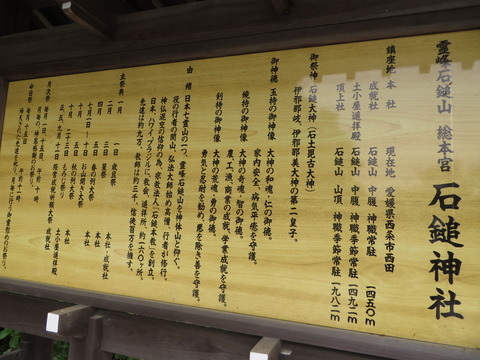 霊峰石鎚山 総本宮 石鎚神社
鎮座地 本社 現在地 愛媛県西条市西田
成就社 石鎚山 中腹 神職常駐 一四五〇m
土小屋遥拝殿 石鎚山 中腹 神職季節常駐 一四九二m
頂上社 石鎚山 山頂 神職季節常駐 一九八二m
御祭神 石鎚大神(石土毘古大神)
伊邪那岐、伊邪那美大神の第二皇子。
御神徳 玉持の御神像 大神の和魂、仁の御徳。
家内安全、病気平癒を守護。
鏡持の御神像 大神の奇魂、智の御徳。
農工漁、商業の成就、学業成就を守護。
剣持の御神像 大神の荒魂、勇の御徳。
勇気と忍耐を勧め、悪を除き善を守護。
由緒 日本七霊山の一つ、霊峰石鎚山を神体山と仰ぐ。
役の行者の開山、弘法大師他の高僧、行者が修行。
神仏混淆の信仰の為、宗教法人「石鎚本教」を創立。
日本、ハワイ、ブラジルに、教会、遥拝所、約一六〇ヶ所、
先達は約九万、教師は約三千、信徒百万を擁す。
主祭典 一月 一日 歳旦祭 本社
二月 三日 節分祭 本社・成就社
七月 一日〜十日 お山開き大祭
十月 十五日 秋の例大祭 本社
十月 二十三日 もみじ祭り
正、五、九月
月次祭
毎日祭